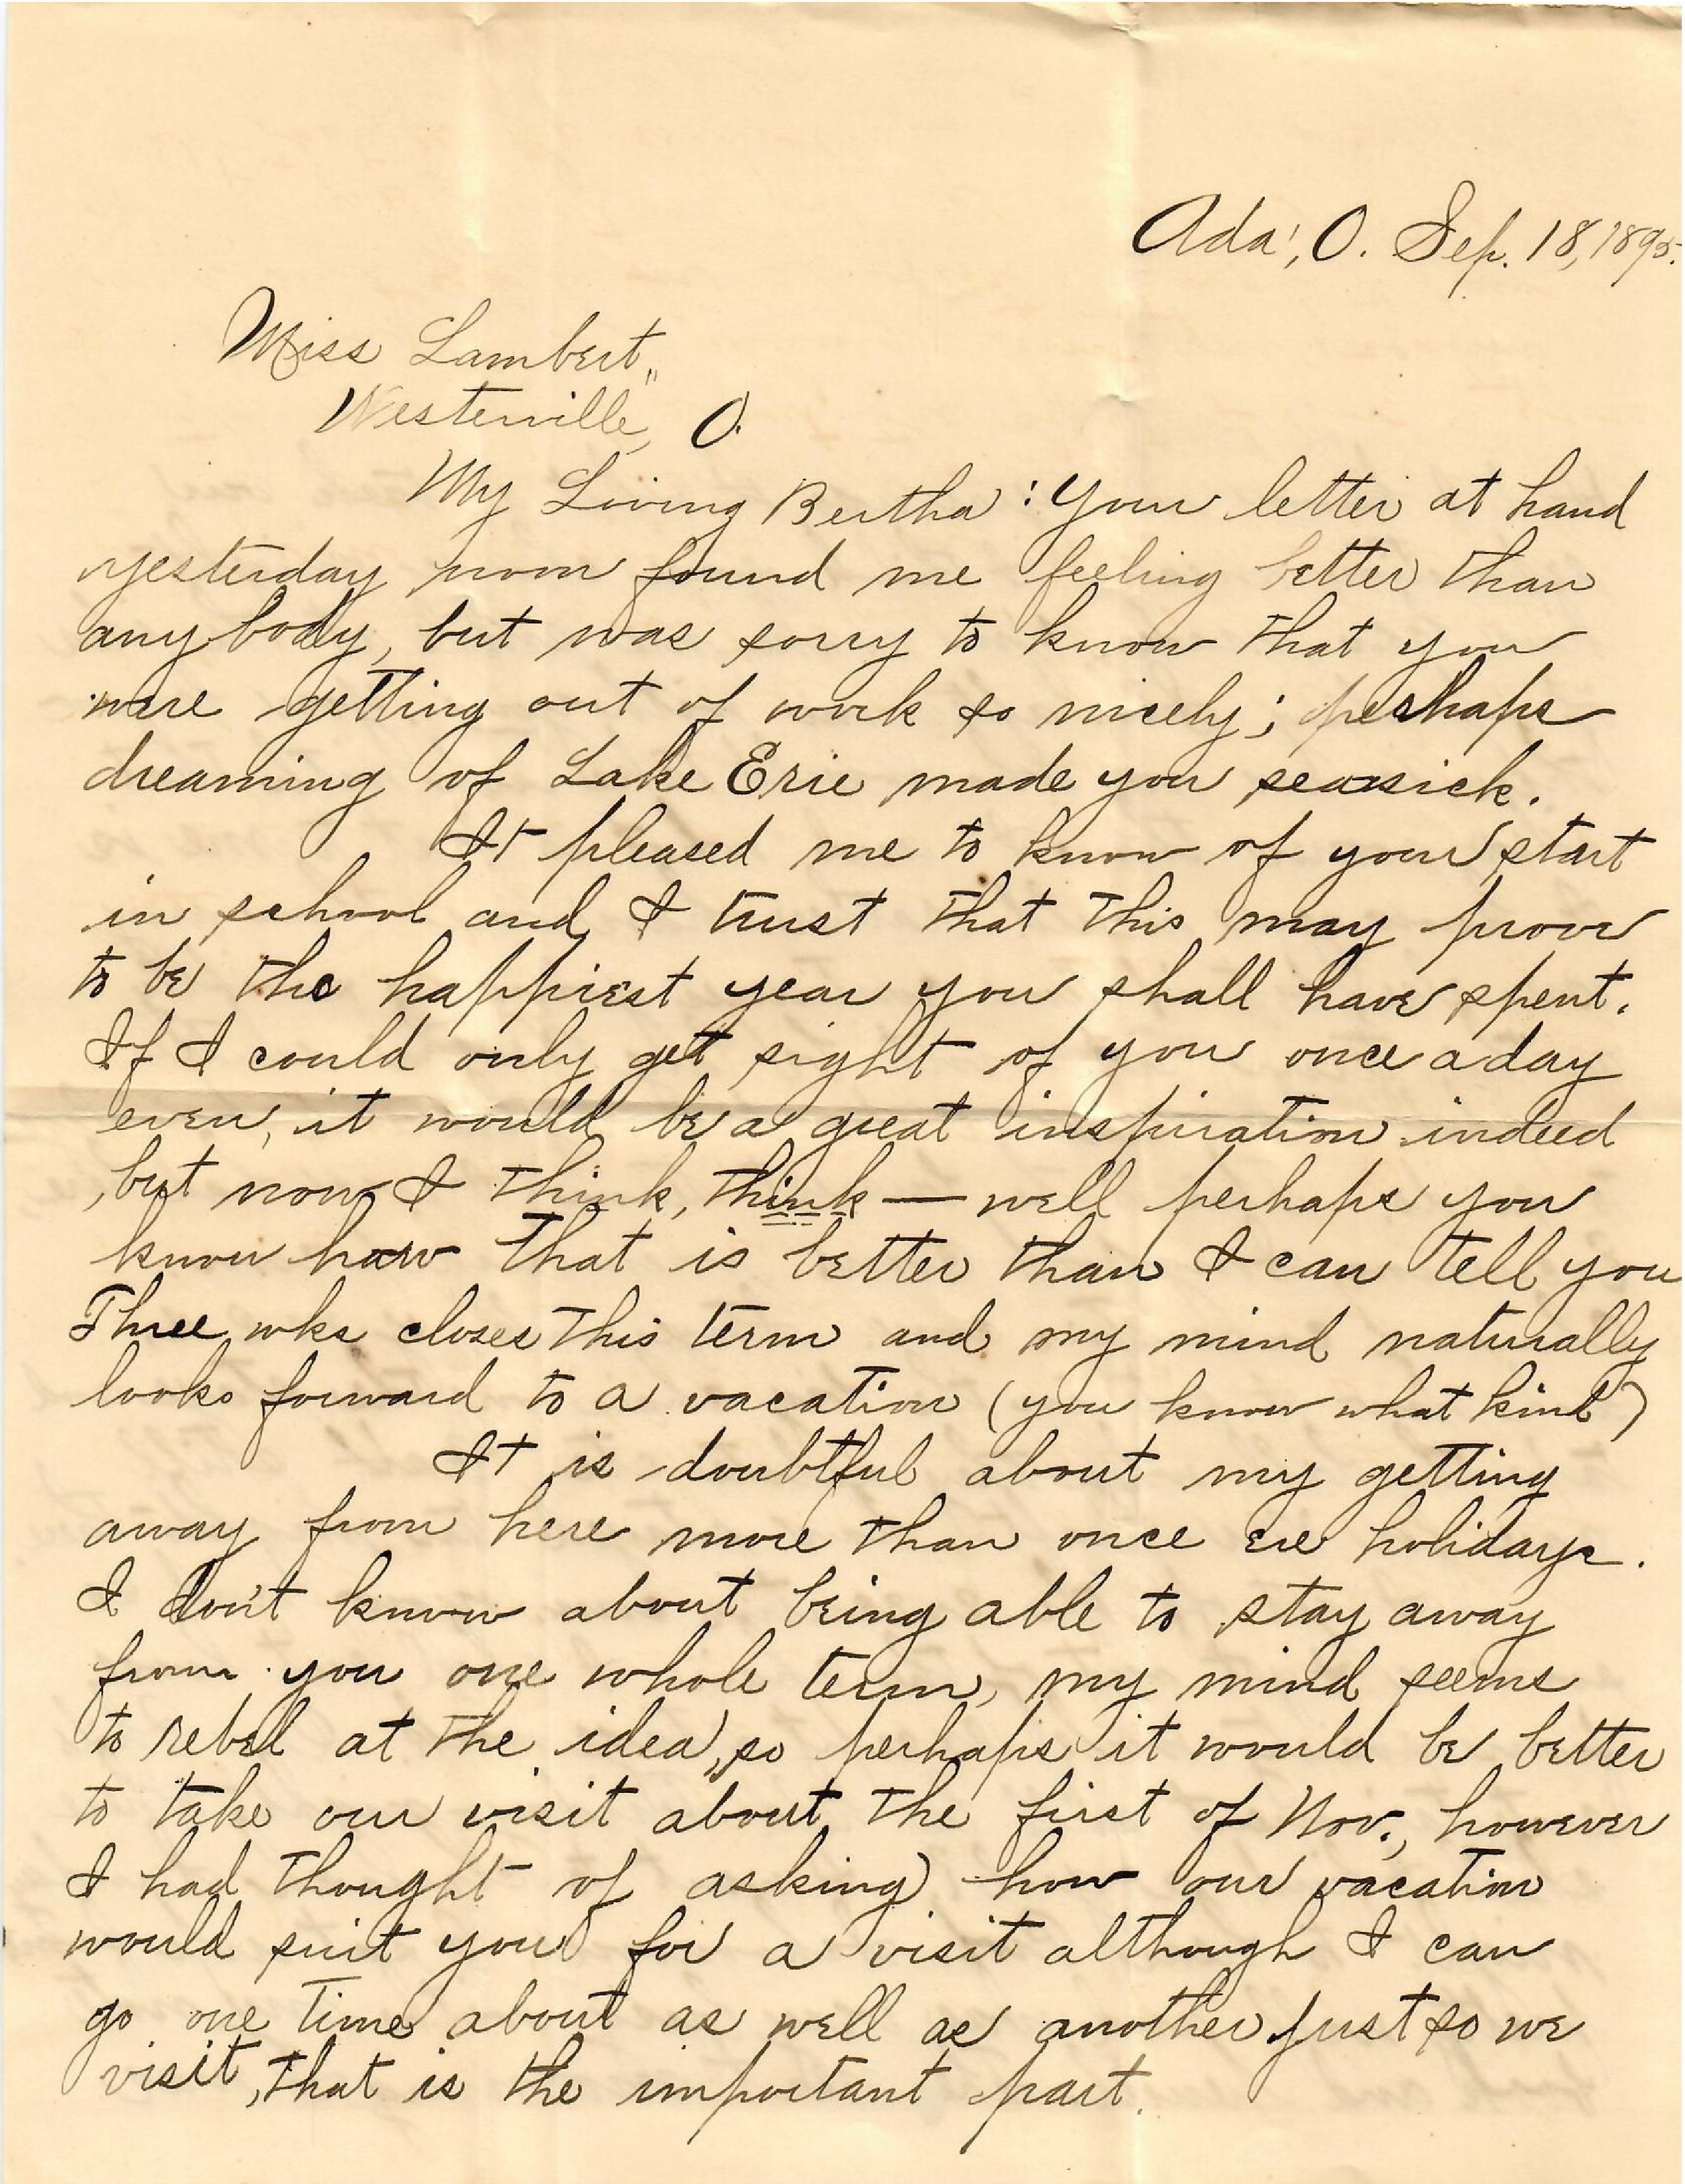 Ada, O. Sep. 18, 1895.
Miss Lambert,
Westerville, O.
My Loving Bertha: Your letter at hand
yesterday noon found me feeling better than
anybody, but was sorry to know that you
were getting out of work so nicely; perhaps
dreaming of Lake Erie made you seasick.
It pleased me to know of your start
in school and I trust that this may prove
to be the happiest year you shall have spent.
If I could only get sight of you once a day
even, it would be a great inspiration indeed
, but now I think, think — well perhaps you
know how that is better than I can tell you
Three wks closes this term and my mind naturally
looks forward to a vacation (you know what kind)
It is doubtful about my getting
away from here more than once ere holidays.
I don't know about being able to stay away
from you one whole term, my mind seems
to rebel at the idea, so perhaps it would be better
to take our visit about the first of Nov., however
I had thought of asking how our vacation
would suit you for a visit although I can
go one time about as well as another just so we
visit, that is the important part.